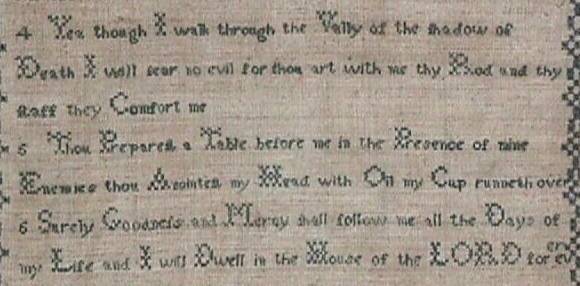 4 Yea though I walk through the Vally of the shadow of
Death I will fear no evil for thou art with me thy Rod and thy
staff they Comfort me
5 Thou Prepares a Table before me in the Presence of mine
Enemies thou Anointes my Head with Oil my Cup runneth over
6 Surely Goodness and Mercy shall follow me all the Days of
my Life and I will Dwell in the House of the LORD for ev er